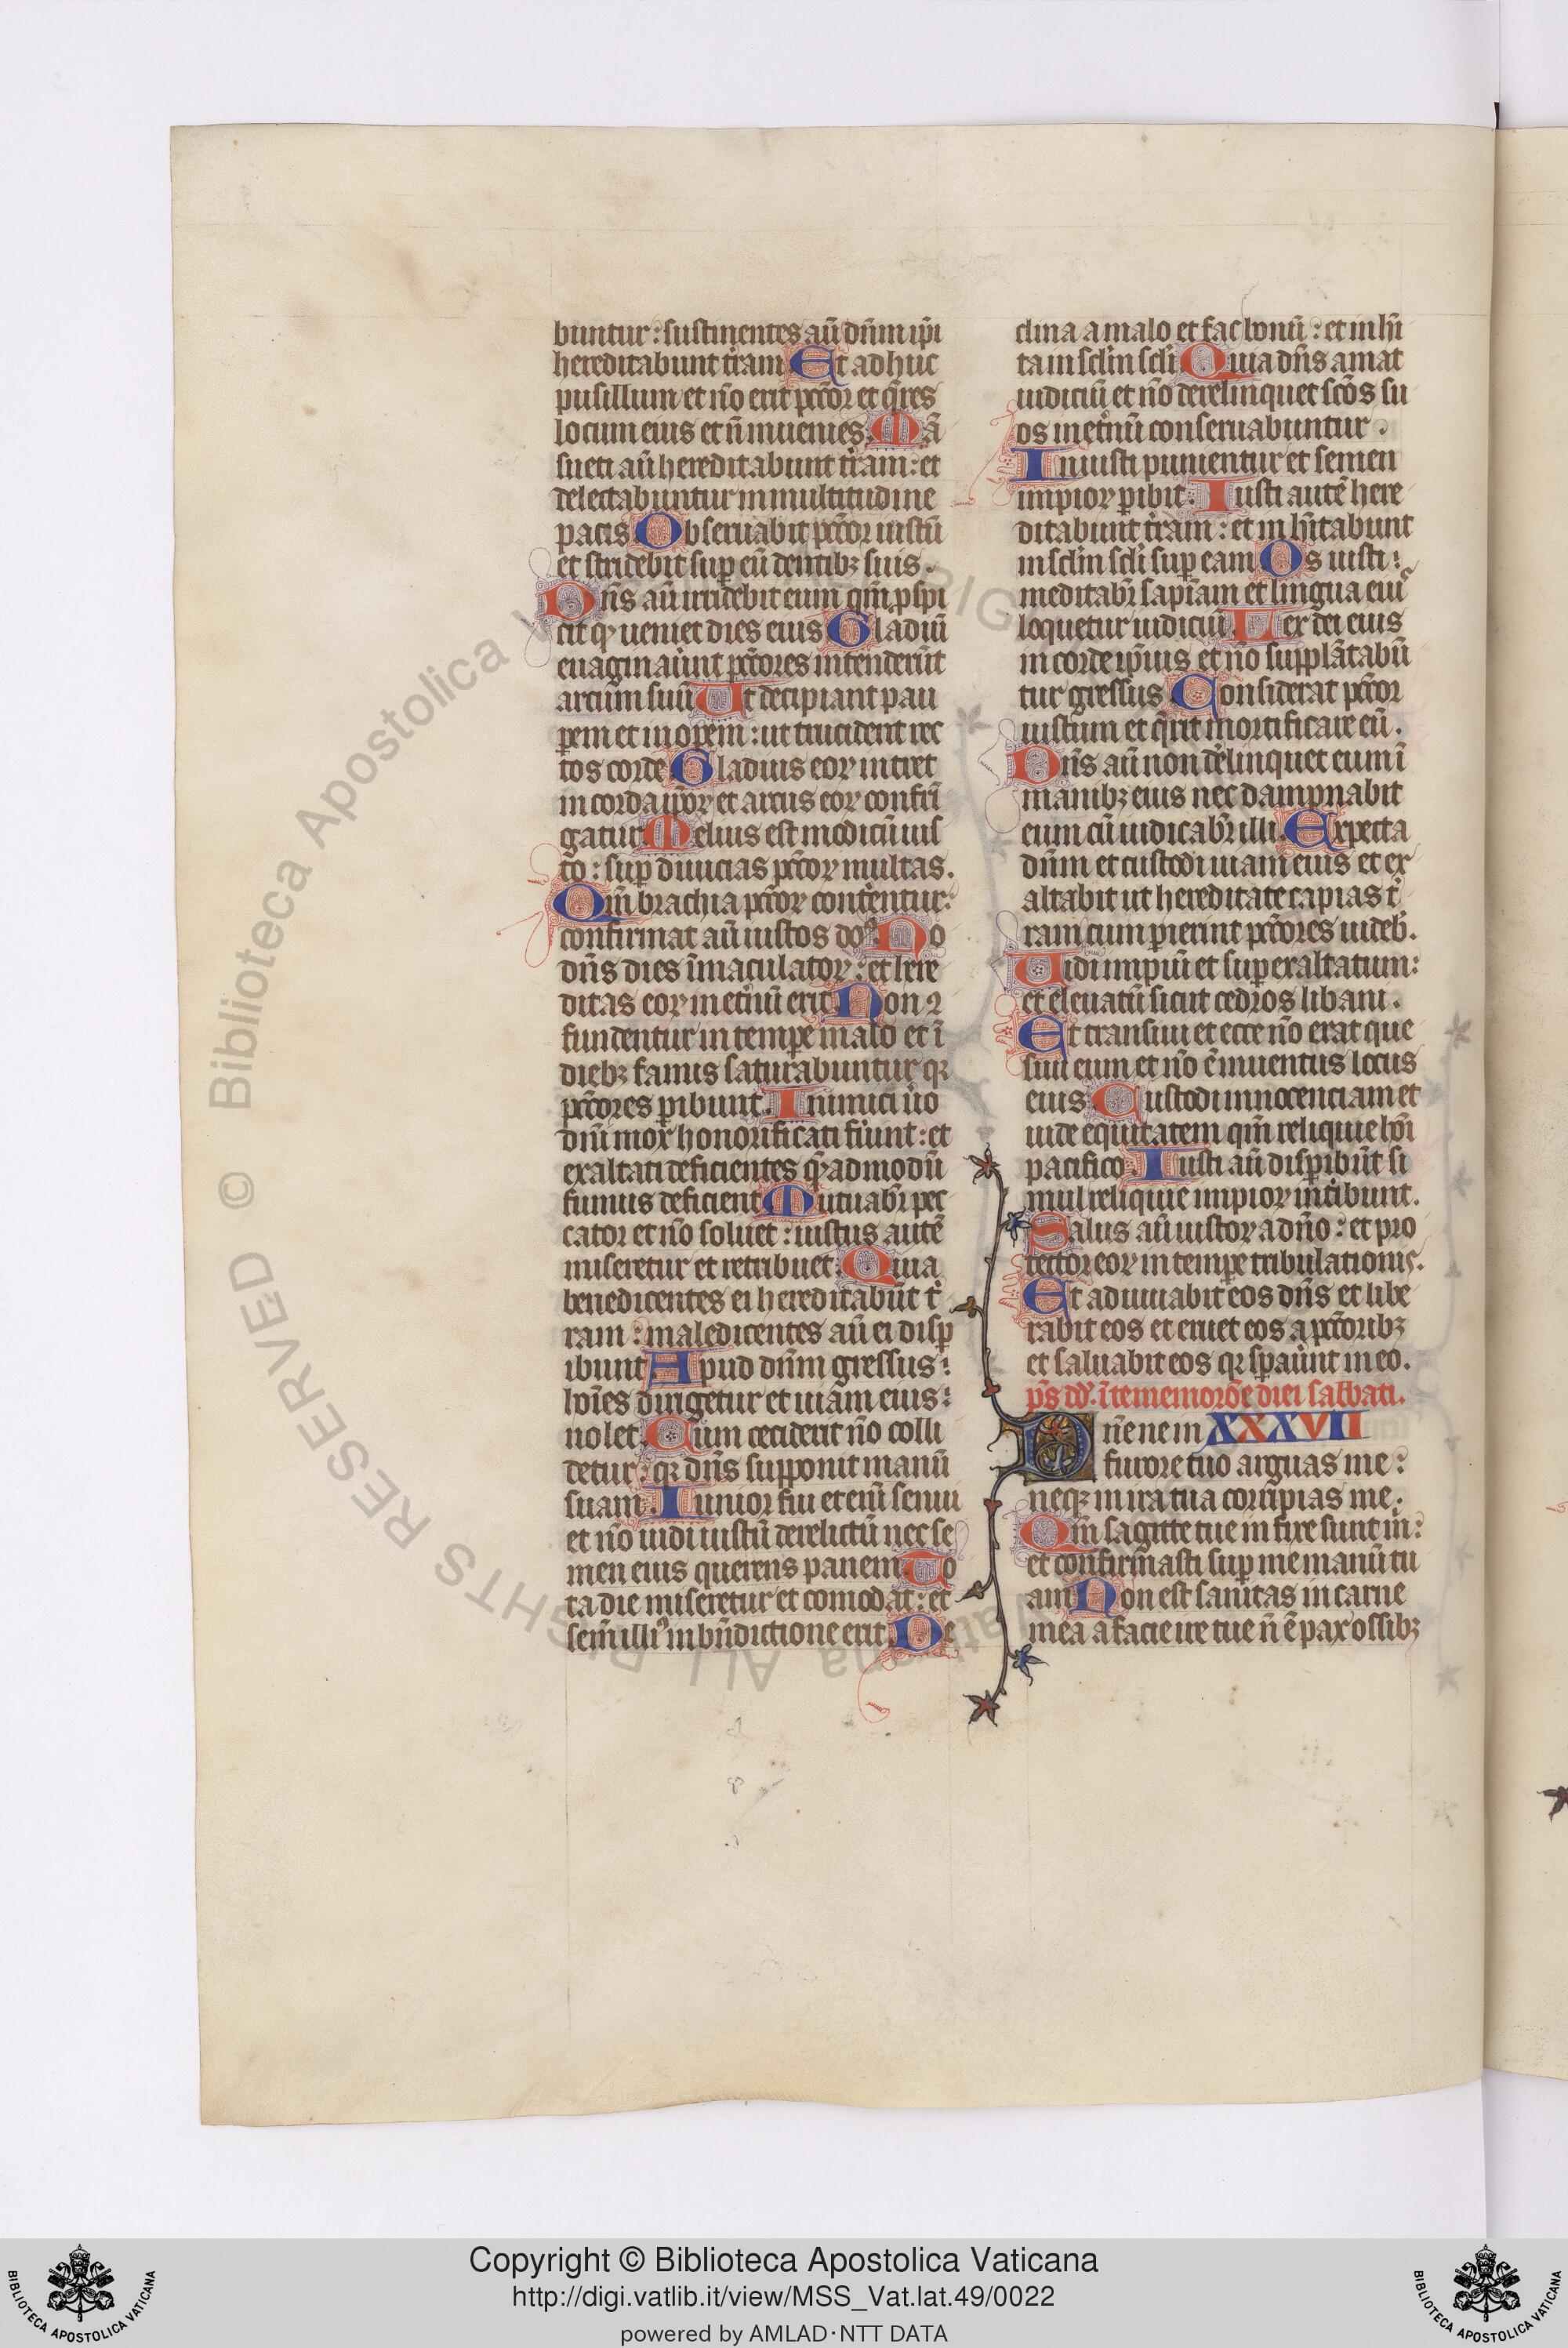 buntur : sustinentes aũ dñm ip̃i
hereditabunt tr̃am Et adhuc
pusillum et nõ erit pc̃cor et q̃res
locum eius et ñ inuenies. Mã
sueti aũ hereditabunt tr̃am : et
delectabuntur in multitudine
pacis Obseruabit pc̃cor iustũ
et stridebit sup eũ dentibꝫ suis .
Dñs aũ irridebit eum qm̃ p̱spi
cit qꝫ ueniet dies eius Gladiũ
euaginaũnt pc̃cores intenderũt
arcum suũ Ut decipiant pau
ꝑem et inopem : ut trucident rec
tos corde Gladius eoꝝ intret
in corda ip̃oꝝ et arcus eoꝝ confrĩ
gatur Melius est modicũ ius
to : sup diuicias pc̃coꝝ multas .
Qm̃ brachia pc̃coꝝ conterentur :
confirmat aũ iustos do᷒. No
dñs dies ĩmaculatoꝝ : et here
ditas eoꝝ in et̃nũ erit Non ꝯ
fundentur in tempe malo et ĩ
diebꝫ famis saturabuntur qꝛ
pc̃cores ꝑibunt . Inimici ũo
dñi mox honorificati fũint : et
exaltati deficientes qꝫadmodũ
fumus deficient Mutuabr̃ pec
cator et nõ soluet : iustus autẽ
miseretur et retribuet . Quia
benedicentes ei hereditabũt t̃
ram : maledicentes aũ ei disꝑ
ibunt Apud dñm gressus :
hoĩes dirigetur et uiam eius :
uolet . Cum ceciderit nõ colli
detur : qꝛ dñs supponit manũ
suam . Iunior fui et eni᷒ senui
et nõ uidi iustũ derelictũ nec se
men eius querens panem To
ta die miseretur et comodat : et
sem̃ illi᷒ in bñdictione erit De
clina a malo et fac bonũ : et inhĩ
ta in sc̃lm sc̃li Quia dñs amat
iudiciũ et nõ derelinquet sc̃os su
os in et̃nũ conseruabuntur .
Iniusti punientur et semen
impioꝝ ꝑibit : Iusti autẽ here
ditabunt tr̃am : et inhĩtabunt
in sc̃lm sc̃li sup eam Os iusti :
meditabr̃ sapĩam et lingua eiu᷒
loquetur iudiciũ Lex dei eius
in corde ip̃ius et nõ supplãtabũ
tur gressus Considerat pc̃cor
iustum et q̃rit mortificare eũ .
Dñs aũ non derelinquet eum ĩ
manibꝫ eius nec dampnabit
eum cũ iudicabr̃ illi . Expecta
dñm et custodi uiam eius et ex
altabit ut hereditate capias t̃
ram cum ꝑierint pc̃cores uideb̃ .
Uidi impiũ et superexaltatum :
et eleuatũ sicut cedros libani .
Et transiui et ecce nõ erat que
siui eum et nõ ẽ inuentus locus
eius . Custodi innocenciam et
uide equitatem qm̃ reliquie hoĩ
pacifico . Iusti aũ disꝑibũt si
mul reliquie impioꝝ int̃ibunt .
Salus aũ iustoꝝ a dño : et pro
tector eoꝝ in tempe tribulationis .
Et adiuuabit eos dñs et libe
rabit eos et eruet eos a pc̃coribꝫ
et saluabit eos qꝛ sꝑaũnt in eo .
ps̃ dd̃ . ĩ rememorõe diei sabbati .
Dñe ne in XXXVII
furore tuo arguas me :
neqꝫ in ira tua corripias me .
Qm̃ sagitte tue infixe sunt m̃ :
et confirmasti sup me manũ tu
am Non est sanitas in carne
mea a facie ire tue ñ ẽ pax ossibꝫ
Copyright © Biblioteca Apostolica Vaticana
http://digi.vatlib.it/view/MSS_Vat.lat.49/0022
powered by AMLAD·NTT DATA
BIBLIOTECA APOSTOLICA VATICANA
BIBLIOTECA APOSTOLICA VATICANA